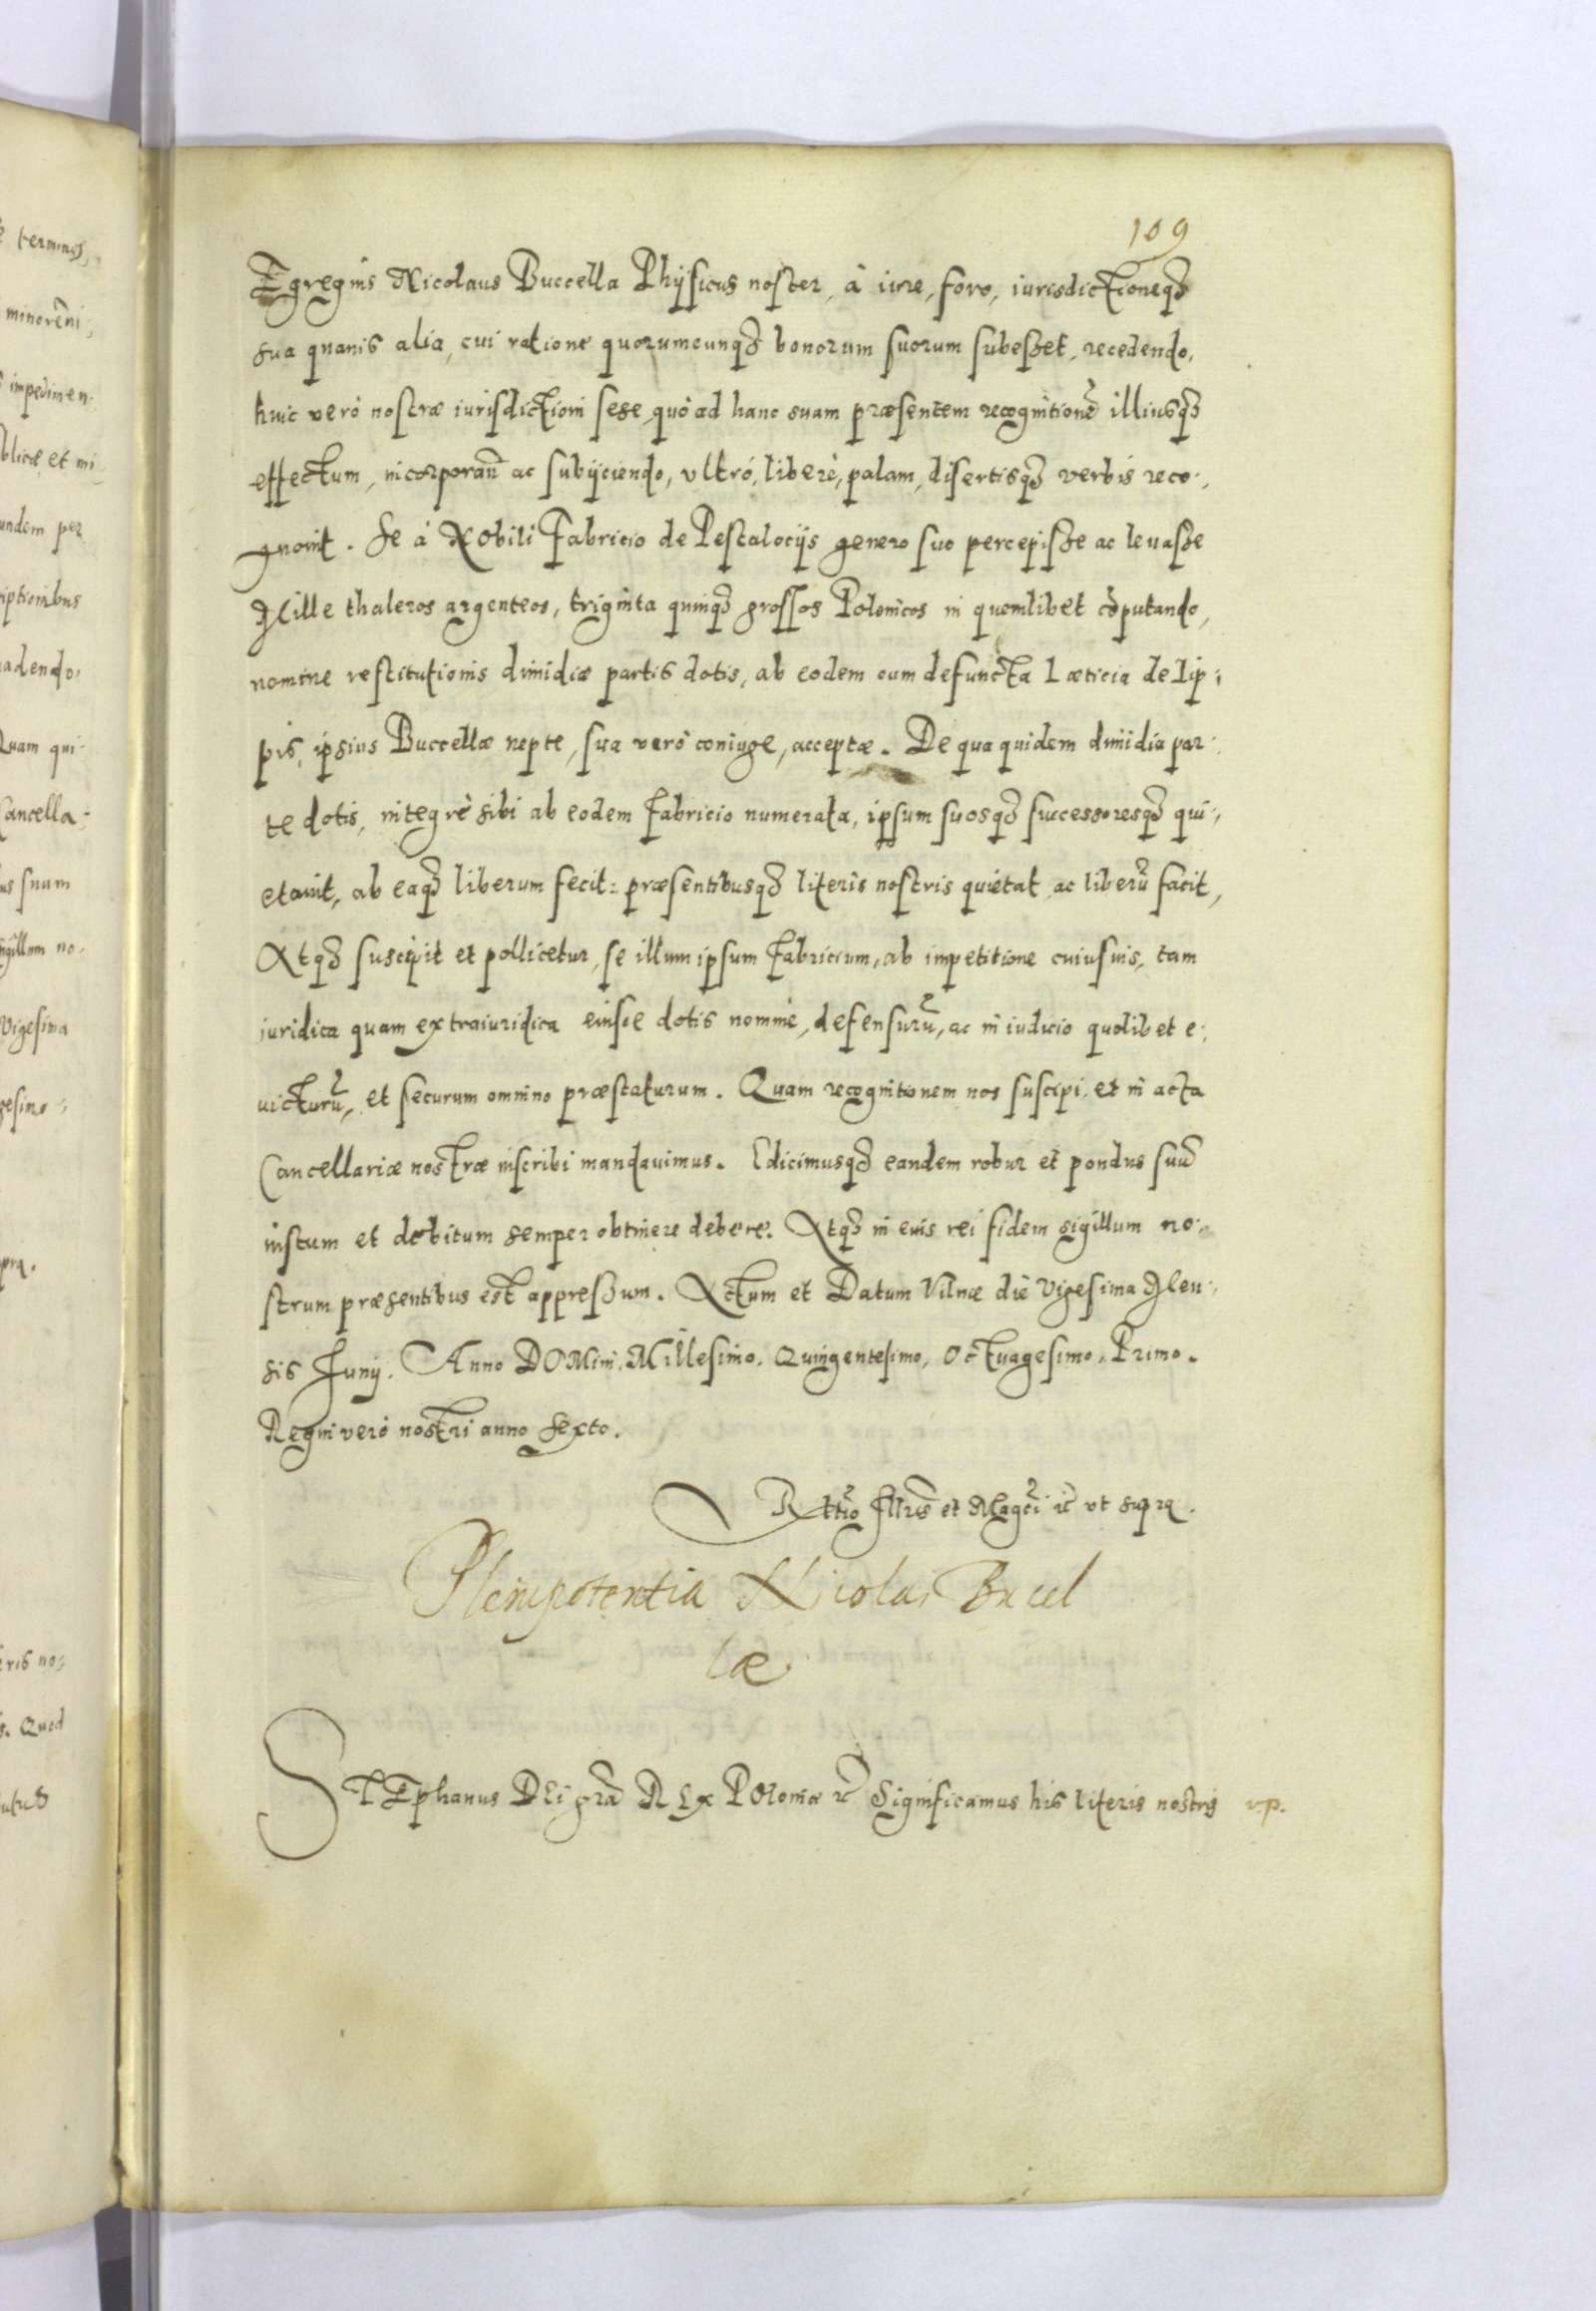 109
Egregius Nicolaus Buccella Physicus noster, à iure, foro, iurisdictioneq3
sua quauis alia, cui ratione quorumcunq3 bonorum suorum subesset, recedendo,
huic verò nostræ iurisdictioni sese, quò ad hanc suam præsentem recognitionẽ illiusq3
effectum, incorporan̄ ac subijciendo, vltrò, liberè, palam, disertisq3 verbis reco-
gnouit. Se à Nobili Fabricio de Pestalocijs genero suo percepisse ac leuasse
Mille thaleros argenteos, triginta quinq3 grossos Polonicos in quemlibet cõputando,
nomine restitutionis dimidiæ partis dotis, ab eodem cum defuncta Læticia de Lip-
pis, ipsius Buccellæ nepte, sua verò coniuge, acceptæ. De qua quidem dimidia par-
te dotis, integrè sibi ab eodem Fabricio numerata, ipsum suosq3 successoresq3 qui-
etauit, ab eaq3 liberum fecit: præsentibusq3 literis nostris quietat ac liberũ facit,
Atq3 suscipit et pollicetur, se illum ipsum Fabricium, ab impetitione cuiusuis, tam
iuridica quam extraiuridica eiusce dotis nomine, defensurũ, ac in iudicio quolibet e-
uicturũ, et securum omnino præstaturum. Quam recognitionem nos suscipi et in acta
Cancellariæ nostræ inscribi mandauimus. Edicimusq3 eandem robur et pondus suũ
iustum et debitum semper obtinere debere. Atq3 in euis rei fidem sigillum no-
strum præsentibus est appressum. Actum et Datum Vilnæ die Vigesima Men-
sis Junij. Anno DOMini. Millesimo. Quingentesimo, Octuagesimo. Primo.
Regni verò nostri anno Sexto.
Rttio Illris et Magci ic vt supra.
Plenipotentia Nicolai Bucel
læ
STEphanus DEi grã REx POloniæ ic Significamus his literis nostris vp.